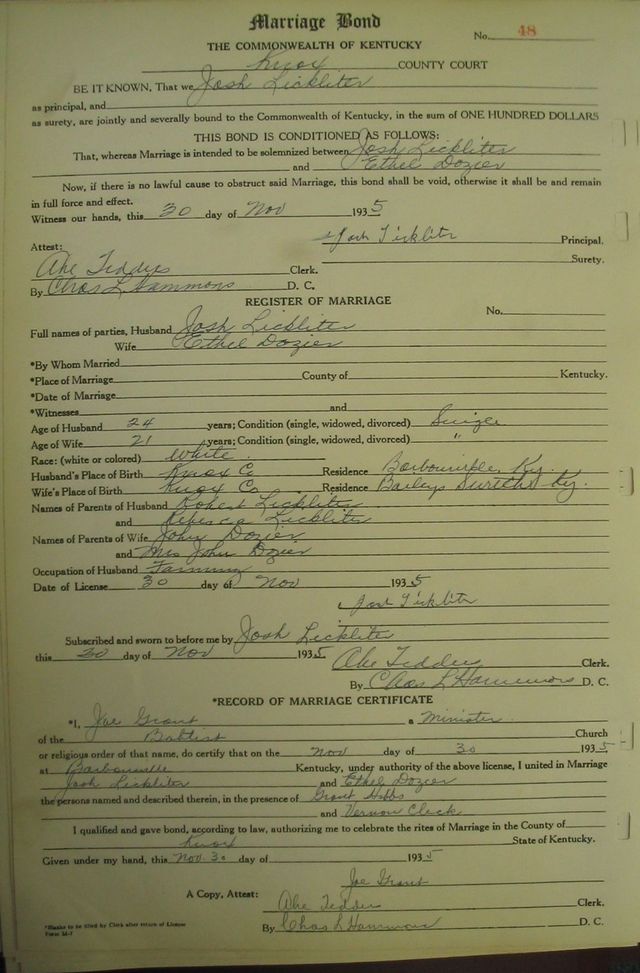 Marriage Bond
No. 48
THE COMMONWEALTH OF KENTUCKY
Knox COUNTY COURT
BE IT KNOWN, That we Josh Lickliter
as principal, and
as surety, are jointly and severally bound to the Commonwealth of Kentucky, in the sum of ONE HUNDRED DOLLARS
THIS BOND IS CONDITIONED AS FOLLOWS:
That, whereas Marriage is intended to be solemnized between Josh Lickliter
and Ethel Dozier
Now, if there is no lawful cause to obstruct said Marriage, this bond shall be void, otherwise it shall be and remain
in full force and effect.
Witness our hands, this 30 day of Nov 1935
Josh Lickliter Principal.
Attest: Surety.
Abe Tedders Clerk.
By Chas L Hammons D. C.
REGISTER OF MARRIAGE
No.
Full names of parties, Husband Josh Lickliter
Wife Ethel Dozier
*By Whom Married
*Place of Marriage County of Kentucky.
*Date of Marriage
*Witnesses and
Age of Husband 24 years; Condition (single, widowed, divorced) Single
Age of Wife 21 years; Condition (single, widowed, divorced) "
Race: (white or colored) White
Husband's Place of Birth Knox C Residence Barbourville, Ky.
Wife's Place of Birth Knox Co Residence Baileys Ky.
Names of Parents of Husband Robert Lickliter
and Rebecca Lickliter
Names of Parents of Wife John Dozier
and Mrs John Dozier
Occupation of Husband Farming
Date of License 30 day of Nov 1935
Josh Lickliter
Subscribed and sworn to before me by Josh Lickliter
this 30 day of Nov 1935
Abe Tedders Clerk.
By Chas L Hammons D. C.
*RECORD OF MARRIAGE CERTIFICATE
*I, Joe Grant a Minister
of the Babtist Church
or religious order of that name, do certify that on the Nov day of 30 1935
at Barbourville Kentucky, under authority of the above license, I united in Marriage
Josh Lickliter and Ethel Dozier
the persons named and described therein, in the presence of Grant Hobbs
and Vernon Cheek
I qualified and gave bond, according to law, authorizing me to celebrate the rites of Marriage in the County of
Knox State of Kentucky.
Given under my hand, this Nov 30 day of 1935
Joe Grant
A Copy, Attest: Abe Tedders Clerk.
By Chas L Hammons D. C.
*Blanks to be filled by Clerk after return of License
Form M-7